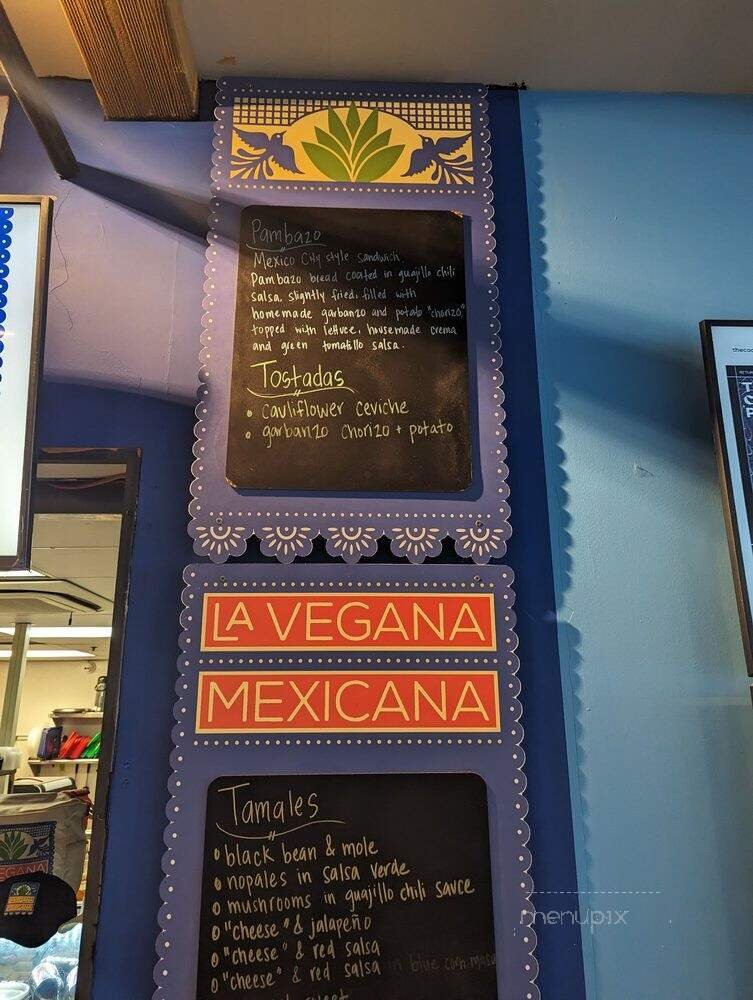 Pambazo
Mexico City style sandwich.
Pambazo bread coated in guajillo chili
salsa, slightly fried, filled with
homemade garbanzo and potato "chorizo"
topped with lettuce, housemade crema
and green tomatillo salsa.
Tostadas
• cauliflower ceviche
• garbanzo chorizo + potato
LA VEGANA
MEXICANA
Tamales
• black bean & mole
• nopales in salsa verde
• mushrooms in guajillo chili sauce
• "cheese" & jalapeño
• "cheese" & red salsa
• "cheese" & red salsa in blue corn masa
sweet
menupix